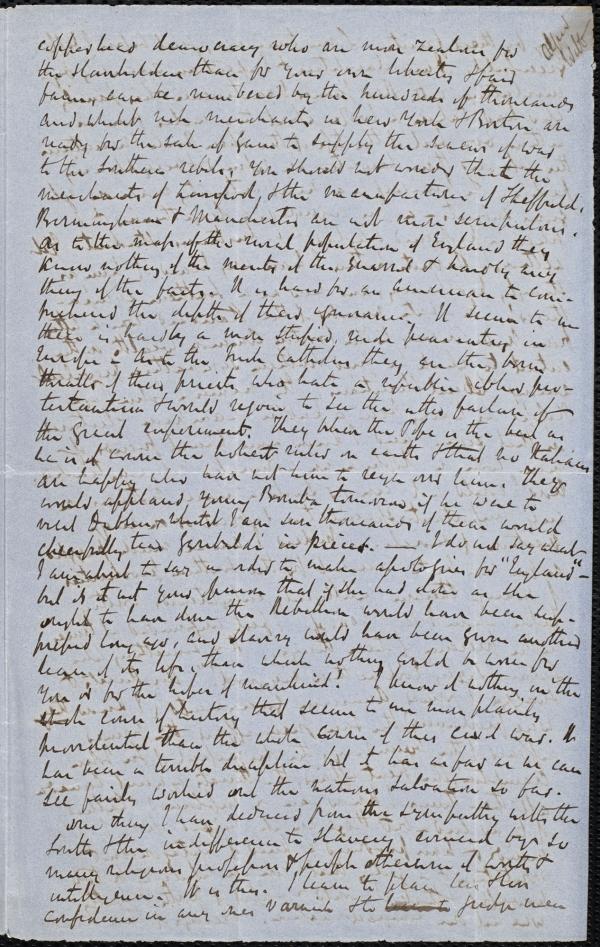 copperhead democracy who are more zealous for
the slaveholders than for your own liberties & fair
fame, can be numbered by the hundreds of thousands
and whilst rich merchants in New York & Boston are
ready for the sake of gain to supply the sinews of war
to the Southern rebels, you should not wonder that the
merchants of Liverpool, & the manufacturers of Sheffield,
Birmingham & Manchester are not more scrupulous.
As to the mass of the rural population of England they
know nothing of the merits of the quarrel & hardly any
thing of the facts. It is hard for an American to com-
prehend the depth of their ignorance. It seems to me
there is hardly a more stupid, rude peasantry in
Europe. As to the Irish Catholics they are the born
thralls of their priests, who hate a republic, abhor pro-
testantism & would rejoice to see the utter failure of
the great experiment. They bless the Pope as the best as
he is of course the holiest ruler on earth & that no Italians
are happy who have not him to reign over them. They
would applaud young Bomba tomorrow if he were to
visit Dublin, whilst I am sure thousands of them would
cheerfully tear Garibaldi in pieces. — I do not say what
I am about to say in order to make apologies for "England" –
but is it not your opinion that if she had done as she
ought to have done the Rebellion would have been sup-
pressed long ago, and slavery would have been given another
lease of its life, than which nothing could be worse for
you or for the hopes of mankind? I know of nothing in the
whole course of history that seems to me more plainly
providential than the whole course of this civil war. It
has been a terrible discipline but it has as far as we can
see fairly worked out the nations salvation so far.
One thing I have deduced from the sympathy with the
South & the indifference to slavery evinced by so
many religious professors & people otherwise of worth &
intelligence. It is this. I learn to place less
confidence in any ones varnish & to judge men